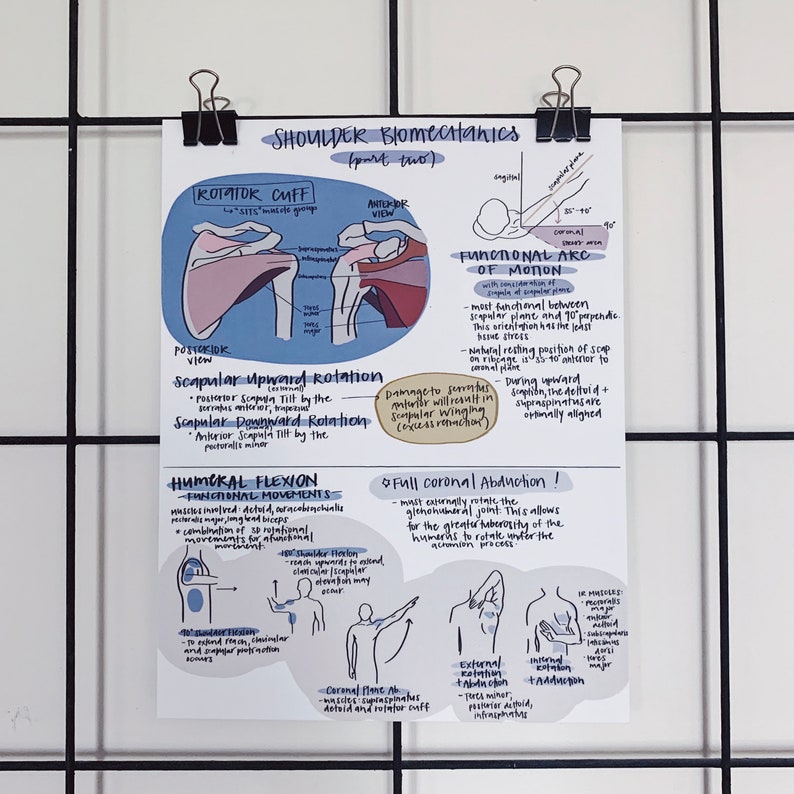 SHOULDER BIOMECHANICS
(part two)
ROTATOR CUFF
"SITS" muscle group
ANTERIOR
VIEW
Supraspinatus
Infraspinatus
Subscapularis
Teres
minor
Teres
major
POSTERIOR
VIEW
sagittal
scapular plane
35°-40°
90°
coronal
stress area
FUNCTIONAL ARC
OF MOTION
with consideration of
scapula at scapular plane
- most functional between
scapular plane and 90° perpendic.
This orientation has the least
tissue stress
- Natural resting position of scap
on ribcage is 35-40° anterior to
coronal plane
- During upward
scaption, the deltoid +
supraspinatus are
optimally aligned
Scapular Upward Rotation
(external)
• Posterior Scapula Tilt by the
serratus anterior, trapezius
Scapular Downward Rotation
• Anterior Scapula Tilt by the
pectoralis minor
Damage to serratus
anterior will result in
scapular winging
(excess retraction)
HUMERAL FLEXION
- FUNCTIONAL MOVEMENTS -
Muscles involved: deltoid, coracobrachialis
pectoralis major, long head biceps
* combination of 3D rotational
movements for a functional
movement.
Full Coronal Abduction!
- must externally rotate the
glenohumeral joint. This allows
for the greater tuberosity of the
humerus to rotate under the
acromion process.
180° Shoulder Flexion
- reach upwards to extend,
clavicular/scapular
elevation may
occur.
90° Shoulder Flexion
- To extend reach, clavicular
and scapular protraction
occurs
Coronal Plane Ab.
- muscles: supraspinatus
deltoid and rotator cuff
External
Rotation
+ Abduction
- Teres minor,
posterior deltoid,
infraspinatus
Internal
Rotation
+ Adduction
IR MUSCLES:
• pectoralis
major
• anterior
deltoid
• subscapularis
• latissimus
dorsi
• teres
major